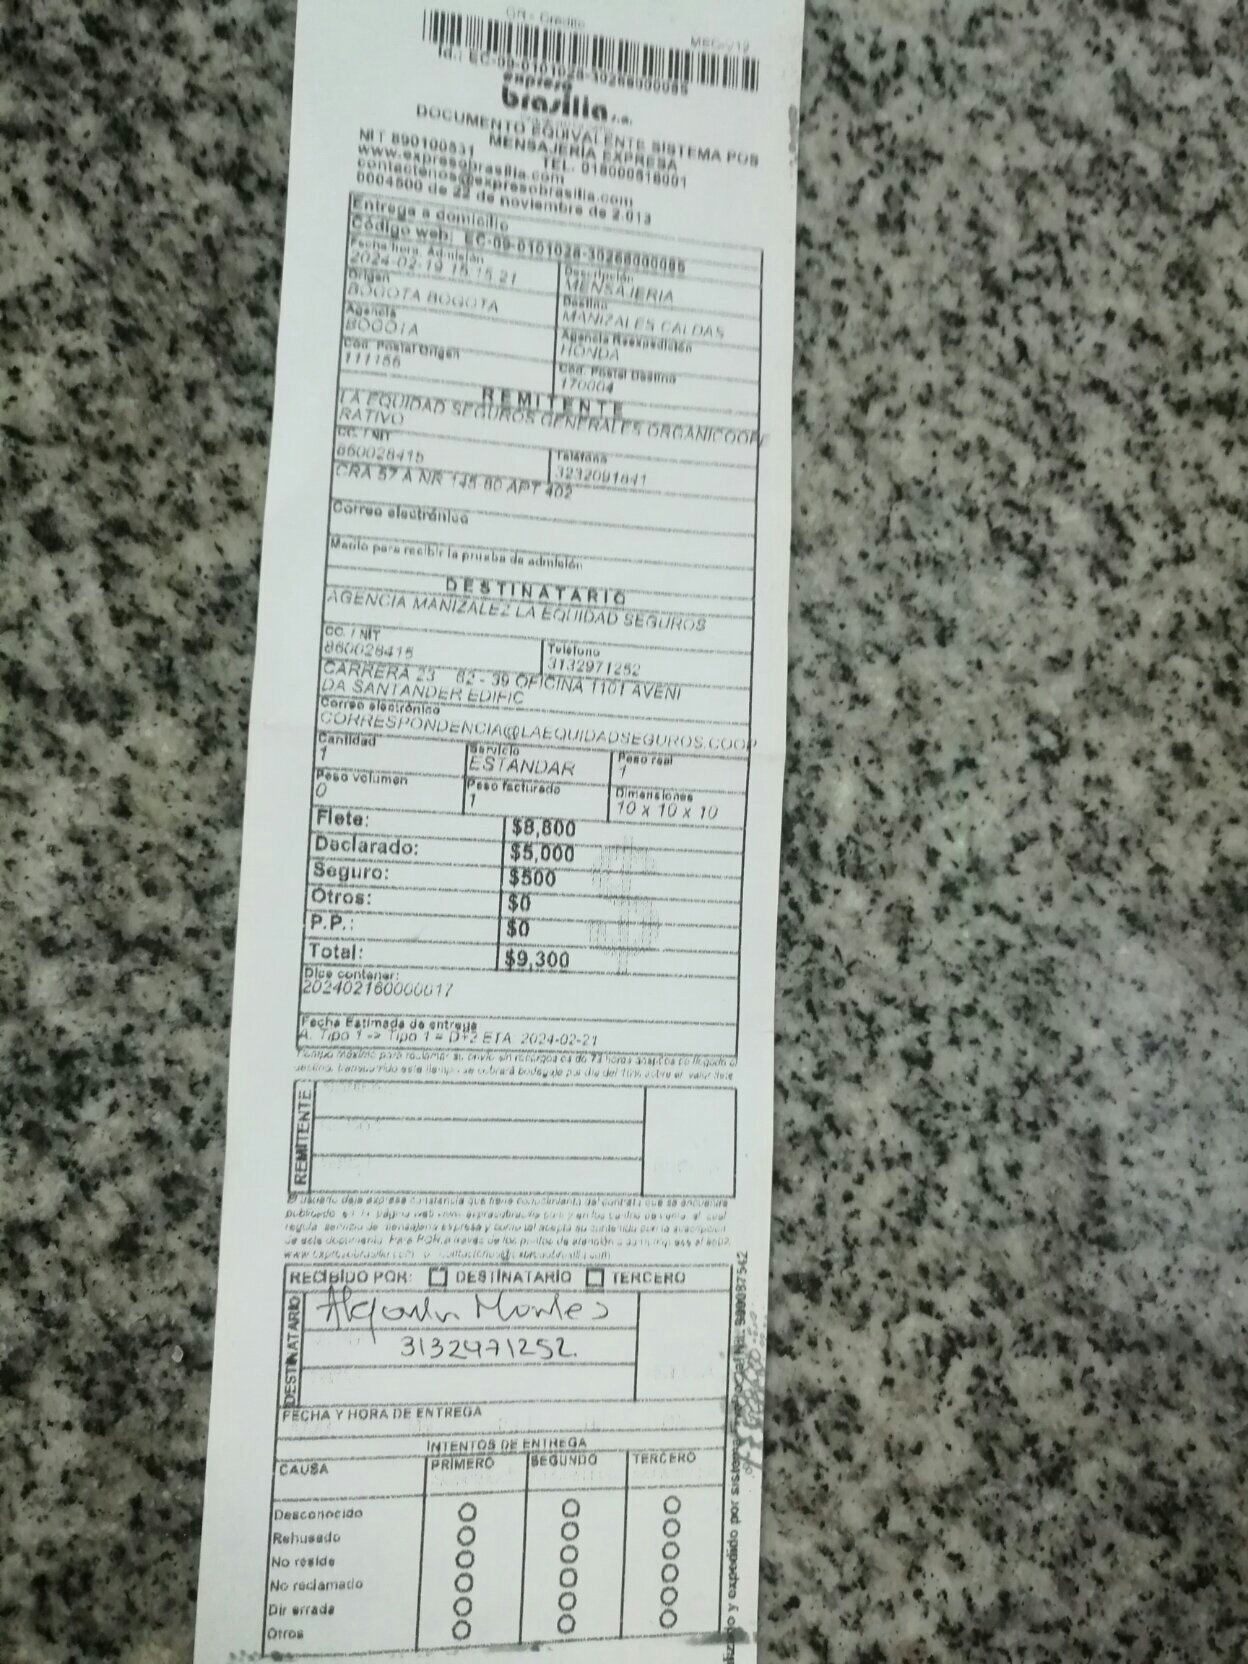 GR - Credito
Id.: EC-09-0101028-30268000085
expreso
brasilia s.a.
DOCUMENTO EQUIVALENTE SISTEMA POS
MENSAJERIA EXPRESA
NIT 890100531 TEL. 018000518001
www.expresobrasilia.com
contactenos@expresobrasilia.com
0004500 de 22 de noviembre de 2.013
Entrega a domicilio
Código web: EC-09-0101028-30268000085
Fecha hora, Admisión Descripción
2024-02-19 15:15:21 MENSAJERIA
Origen Destino
BOGOTA BOGOTA MANIZALES CALDAS
Agencia Agencia Reexpedición
BOGOTA HONDA
Cod. Postal Origen Cod. Postal Destino
111156 170004
REMITENTE
LA EQUIDAD SEGUROS GENERALES ORGANICOOPE
RATIVO
CC. / NIT Teléfono
860028415 3232091841
CRA 57 A NR 145 80 APT 402
Correo electrónico
Medio para recibir la prueba de admisión
DESTINATARIO
AGENCIA MANIZALEZ LA EQUIDAD SEGUROS
CC. / NIT Teléfono
860028415 3132971252
CARRERA 23 62 - 39 OFICINA 1101 AVENI
DA SANTANDER EDIFIC
Correo electrónico
CORRESPONDENCIA@LAEQUIDADSEGUROS.COOP
Cantidad Servicio Peso real
1 ESTANDAR 1
Peso volumen Peso facturado Dimensiones
0 1 10 x 10 x 10
Flete: $8,800
Declarado: $5,000
Seguro: $500
Otros: $0
P.P.: $0
Total: $9,300
Dice contener:
202402160000017
Fecha Estimada de entrega
A. Tipo 1 -> Tipo 1 = D+2 ETA. 2024-02-21
REMITENTE
RECIBIDO POR: DESTINATARIO TERCERO
DESTINATARIO
Montes
3132971252.
FECHA Y HORA DE ENTREGA
INTENTOS DE ENTREGA
CAUSA PRIMERO SEGUNDO TERCERO
Desconocido
Rehusado
No reside
No reclamado
Dir errada
Otros